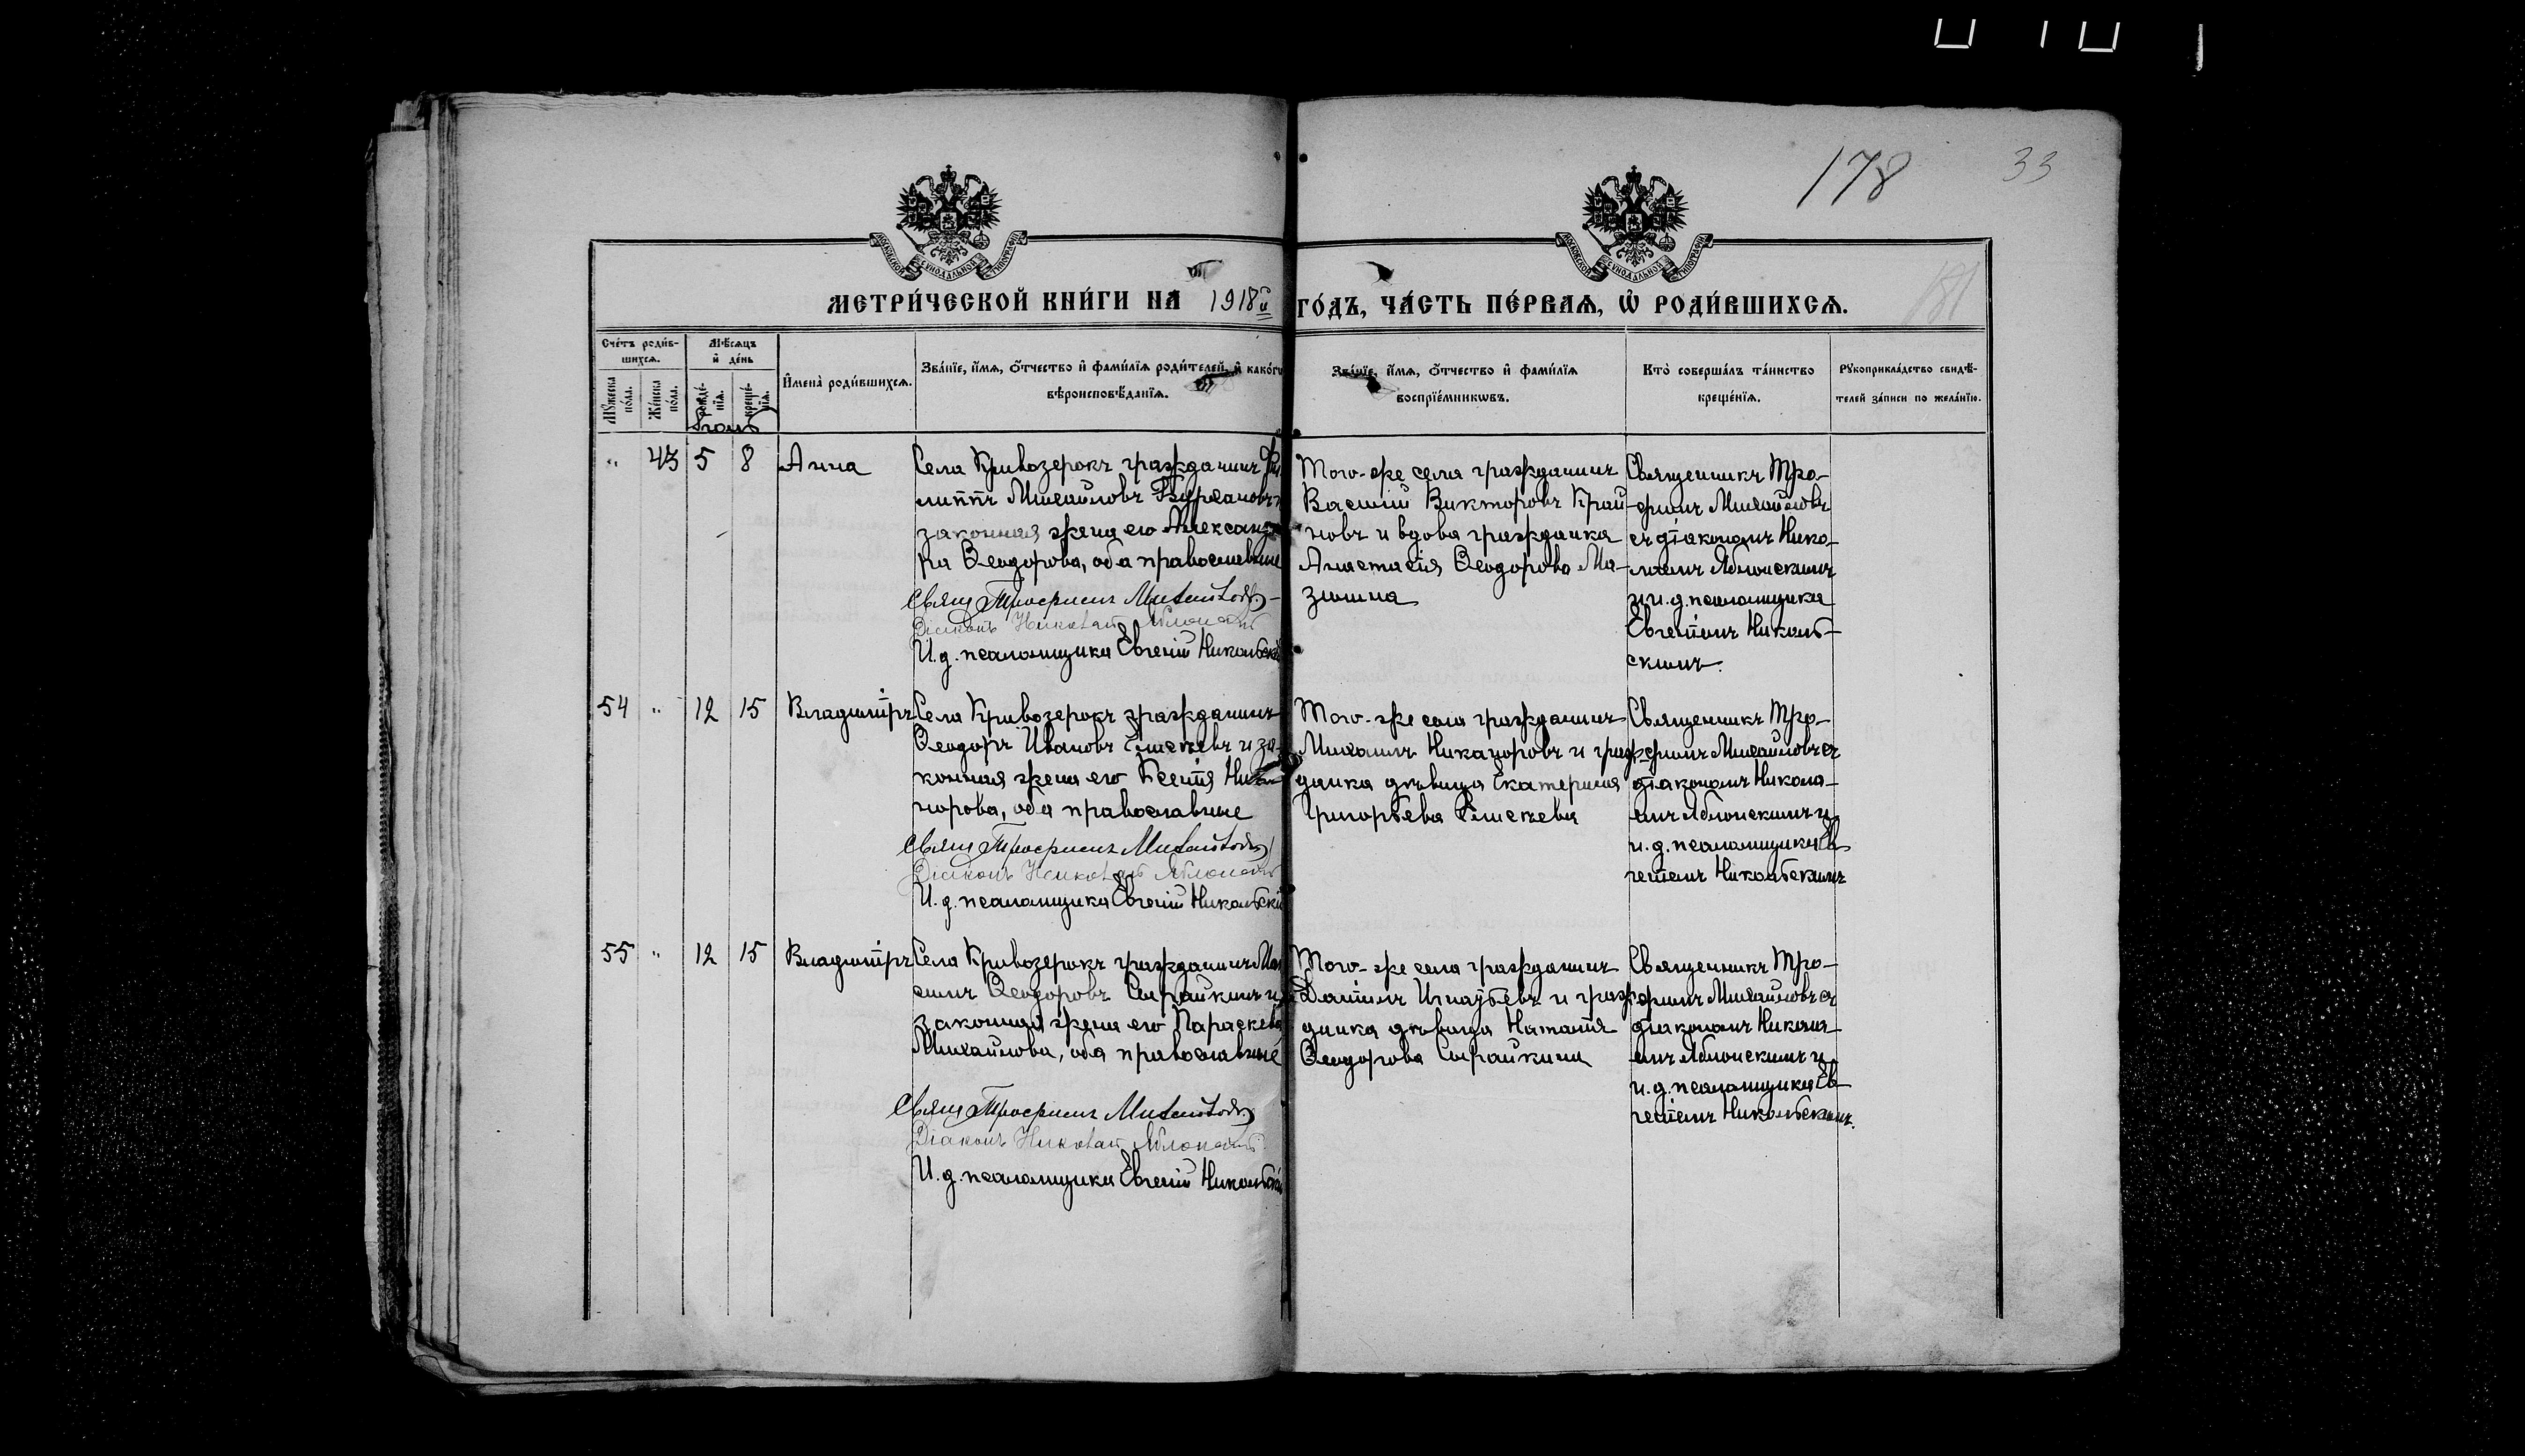 178
33
181
МОСКОВСКОЙ СѴНОДАЛЬНОЙ ТИПОГРАФІИ
МОСКОВСКОЙ СѴНОДАЛЬНОЙ ТИПОГРАФІИ
МЕТРИ́ЧЕСКОЙ КНИ́ГИ НА 1918й ГО́ДЪ, ЧА́СТЬ ПЕ́РВАѦ, Ѡ҆ РОДИ́ВШИХСѦ.
Сче́тъ роди́в-
шихсѧ.
Мꙋ́жеска по́ла.
Же́нска по́ла.
Мѣ́сѧцъ
и҆ де́нь
рожде́-
нїѧ.
креще́-
нїѧ.
И҆мена̀ роди́вшихсѧ.
Зва́нїе, и҆́мѧ, ѻ҆́тчество и҆ фами́лїѧ роди́телей, и҆ какѡ́гѡ
вѣроисповѣ́данїѧ.
Зва́нїе, и҆́мѧ, ѻ҆́тчество и҆ фами́лїѧ
воспрїе́мникѡвъ.
Кто̀ соверша́лъ та́инство
креще́нїѧ.
Рꙋкоприкла́дство свидѣ́-
телей за́писи по жела́нїю.
" 43 5 8 Анна
Села Кривозерокъ гражданинъ Фи
липпъ Михайловъ
законная жена его Александ
ра Ѳеодорова, оба православные
Свящ Трофимъ Михайловъ
Діаконъ Николай Яблонскій
И. д. псаломщика Евгеній Никольскій
Того-же села гражданинъ
Василій Викторовъ Край
новъ и вдова гражданка
Анастасія Ѳеодорова Ма-
зина
Священникъ Тро-
фимъ Михайловъ
съ діакономъ Нико-
лаемъ Яблонскимъ
и и. д. псаломщика
Евгеніемъ Николь-
скимъ.
54 " 12 15 Владиміръ
Села Кривозерокъ гражданинъ
Ѳеодоръ Ивановъ Елисѣевъ и за-
конная жена его Ксенія Ника
норова, оба православные
Свящ Трофимъ Михайловъ
Діаконъ Николай Яблонскій
И. д. псаломщика Евгеній Никольскій
Того-же села гражданинъ
Михаилъ Никаноровъ и граж-
данка дѣвица Екатерина
Григорьева Елисѣева
Священникъ Тро-
фимъ Михайловъ съ
діакономъ Никола-
емъ Яблонскимъ и
и. д. псаломщика Ев
геніемъ Никольскимъ
55 " 12 15 Владиміръ
Села Кривозерокъ гражданинъ Мак
симъ Ѳеодоровъ Сырайкинъ и
законная жена его Параскева
Михайлова, оба православные
Свящ Трофимъ Михайловъ
Діаконъ Николай Яблонскій
И. д. псаломщика Евгеній Никольскій
Того-же села гражданинъ
Даніилъ Игнатьевъ и граж
данка дѣвица Наталія
Ѳеодорова Сырайкина
Священникъ Тро-
фимъ Михайловъ съ
діакономъ Никола-
емъ Яблонскимъ и
и. д. псаломщика Ев
геніемъ Никольскимъ.